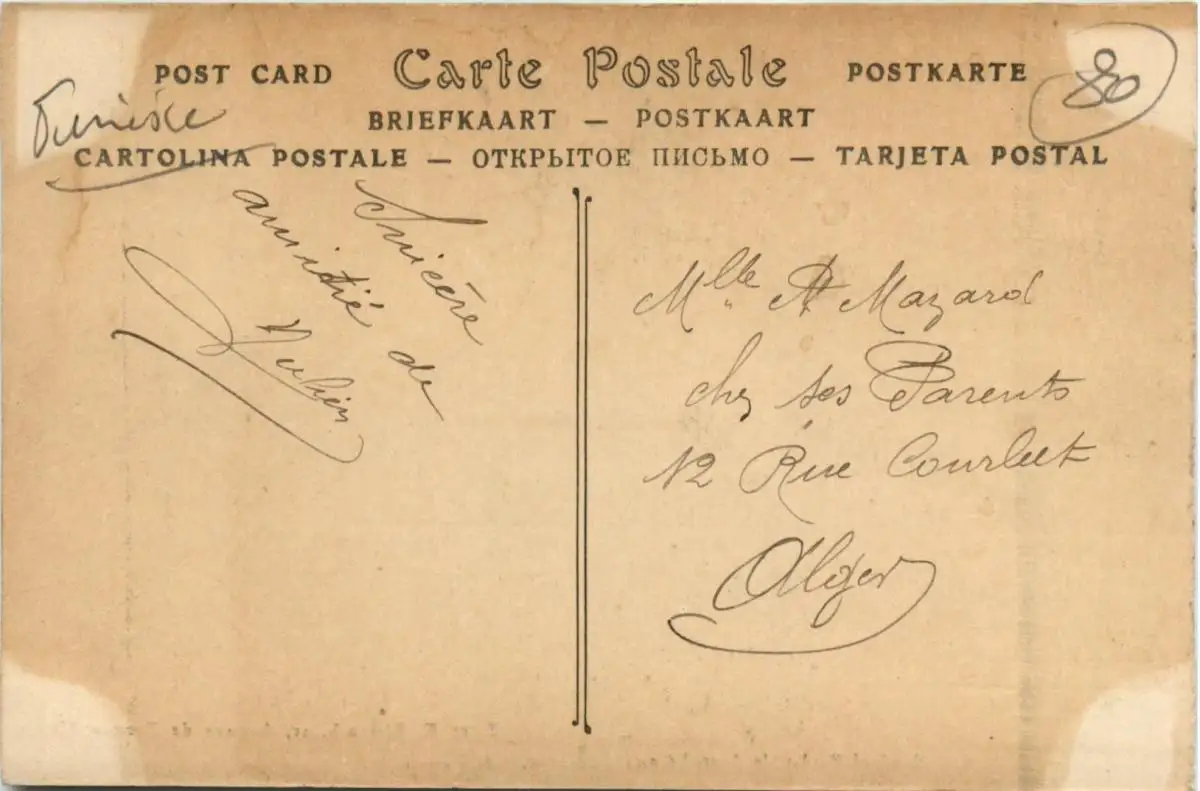 POST CARD Carte Postale POSTKARTE
80
Tunisie
BRIEFKAART — POSTKAART
CARTOLINA POSTALE — ОТКРЫТОЕ ПИСЬМО — TARJETA POSTAL
Sincère
amitié de
Julien
Mlle A Mazard
chez ses Parents
12 Rue Courbet
Alger